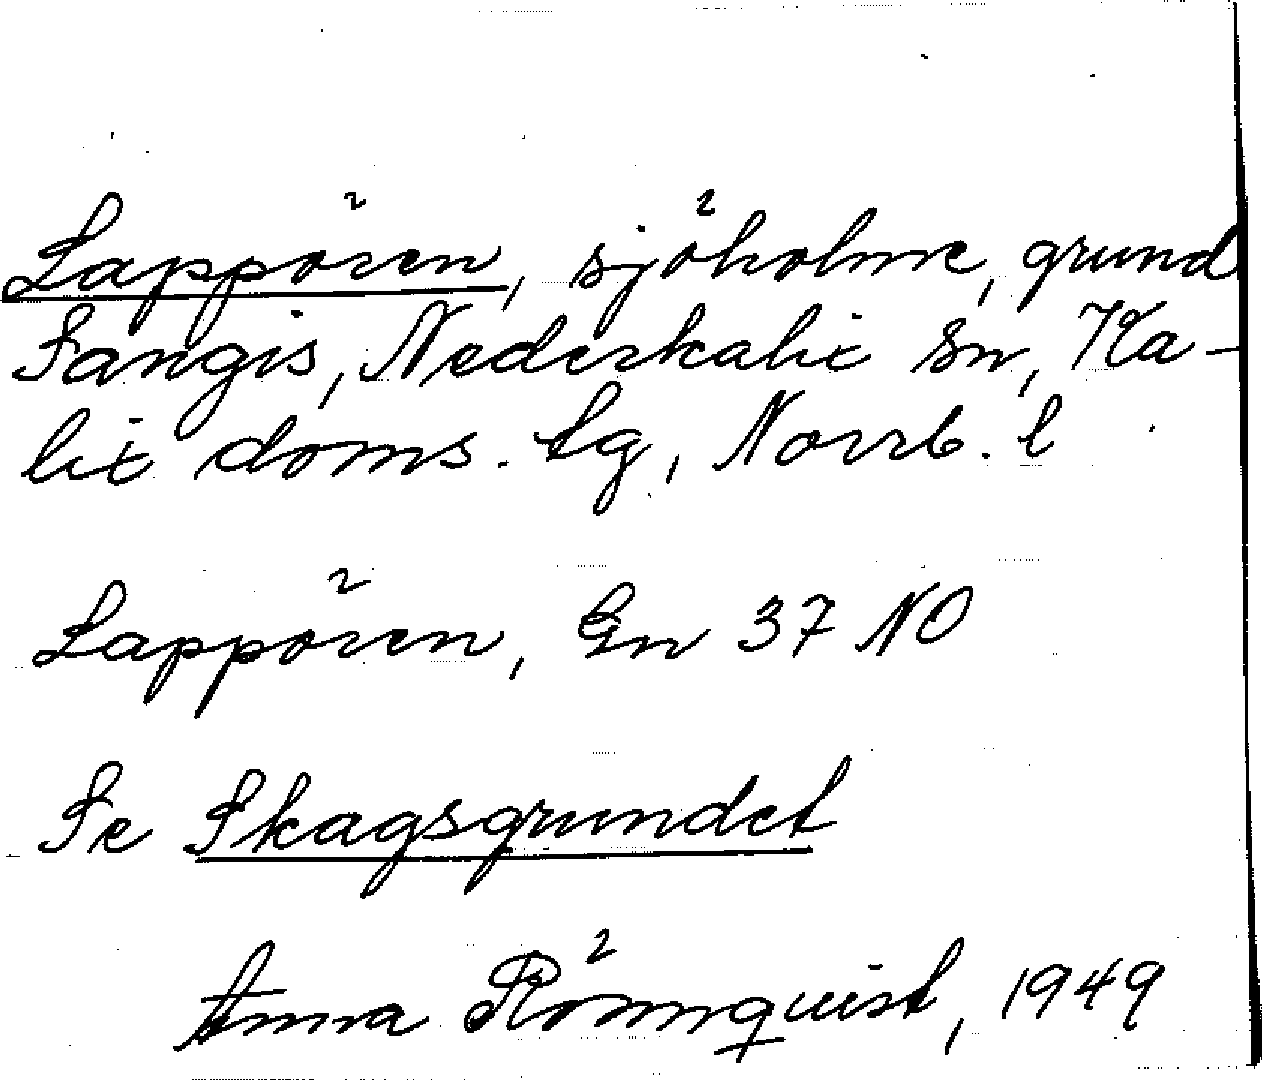 Lappören, sjöholme, grund
Sangis, Nederkalix sn, Ka-
lix doms. tg, Norrb. l
Lappören, Gn 37 NO
Se Skagsgrundet
Anna Rönnquist, 1949